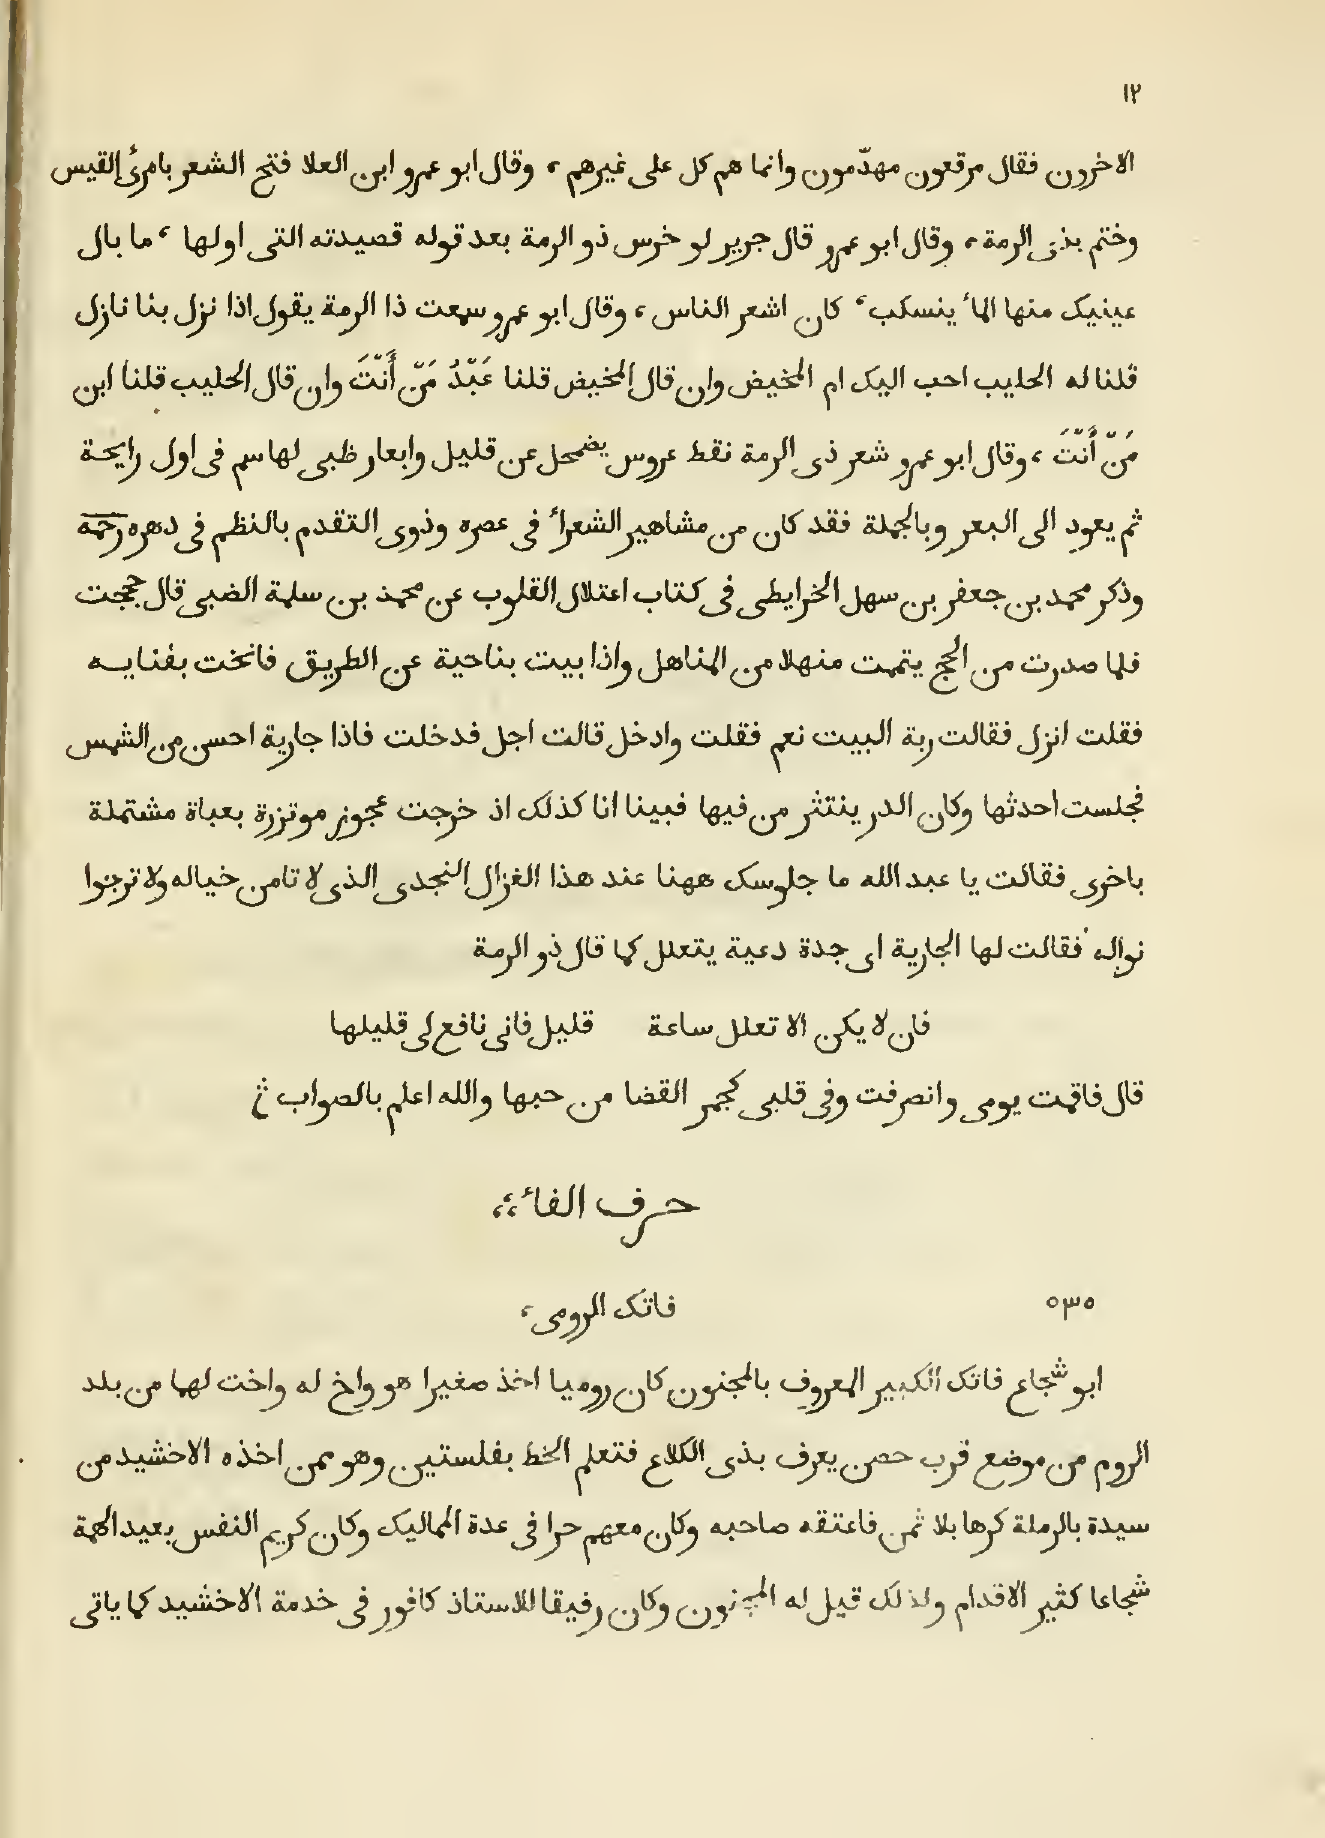 ١٢
الاخرون فقال مرقعون مهدّمون وانما هم كل على غيرهم ، وقال ابو عمرو ابن العلا فتح الشعر بامرئ القيس
وختم بذى الرمة ، وقال ابو عمرو قال جرير لو خرس ذو الرمة بعد قوله قصيدته التى اولها ، ما بال
عينيك منها الماء ينسكب ، كان اشعر الناس ، وقال ابو عمرو سمعت ذا الرمة يقول اذا نزل بنا نازل
قلنا له الحليب احب اليك ام المخيض وان قال المخيض قلنا عَبْدُ مَنْ أَنْتَ وان قال الحليب قلنا ابن
مَنْ أَنْتَ ، وقال ابو عمرو شعر ذى الرمة نقط عروس يضمحل عن قليل وابعار ظبى لها سم فى اول رايحة
ثم يعود الى البعر وبالجملة فقد كان من مشاهير الشعراء فى عصره وذوى التقدم بالنظم فى دهره رحمه
وذكر محمد بن جعفر بن سهل الخرايطى فى كتاب اعتلال القلوب عن محمد بن سلمة الضبى قال حججت
فلما صدرت من الحج يتممت منهلا من المناهل واذا بيت بناحية عن الطريق فانخت بفنايه
فقلت انزل فقالت ربة البيت نعم فقلت وادخل قالت اجل فدخلت فاذا جارية احسن من الشمس
فجلست احدثها وكان الدر ينتثر من فيها فبينا انا كذلك اذ خرجت عجوز موتزرة بعباة مشتملة
باخرى فقالت يا عبد الله ما جلوسك ههنا عند هذا الغزال النجدى الذى لا تامن خياله ولا ترجوا
نواله فقالت لها الجارية اى جدة دعية يتعلل كما قال ذو الرمة
فان لا يكن الا تعلل ساعة قليل فانى نافع لى قليلها
قال فاقمت يومى وانصرفت وفى قلبى كجمر القضا من حبها والله اعلم بالصواب
حرف الفاء
٥٣٥ فاتك الرومى ،
ابو شجاع فاتك الكبير المعروف بالمجنون كان روميا اخذ صغيرا هو واخ له واخت لهما من بلد
الروم من موضع قرب حصن يعرف بذى الكلاع فتعلم الخط بفلستين وهو ممن اخذه الاخشيد من
سيدة بالرملة كرها بلا ثمن فاعتقه صاحبه وكان معهم حرا فى عدة المماليك وكان كريم النفس بعيد الهمة
شجاعا كثير الاقدام ولذلك قيل له المجنون وكان رفيقا للاستاذ كافور فى خدمة الاخشيد كما ياتى